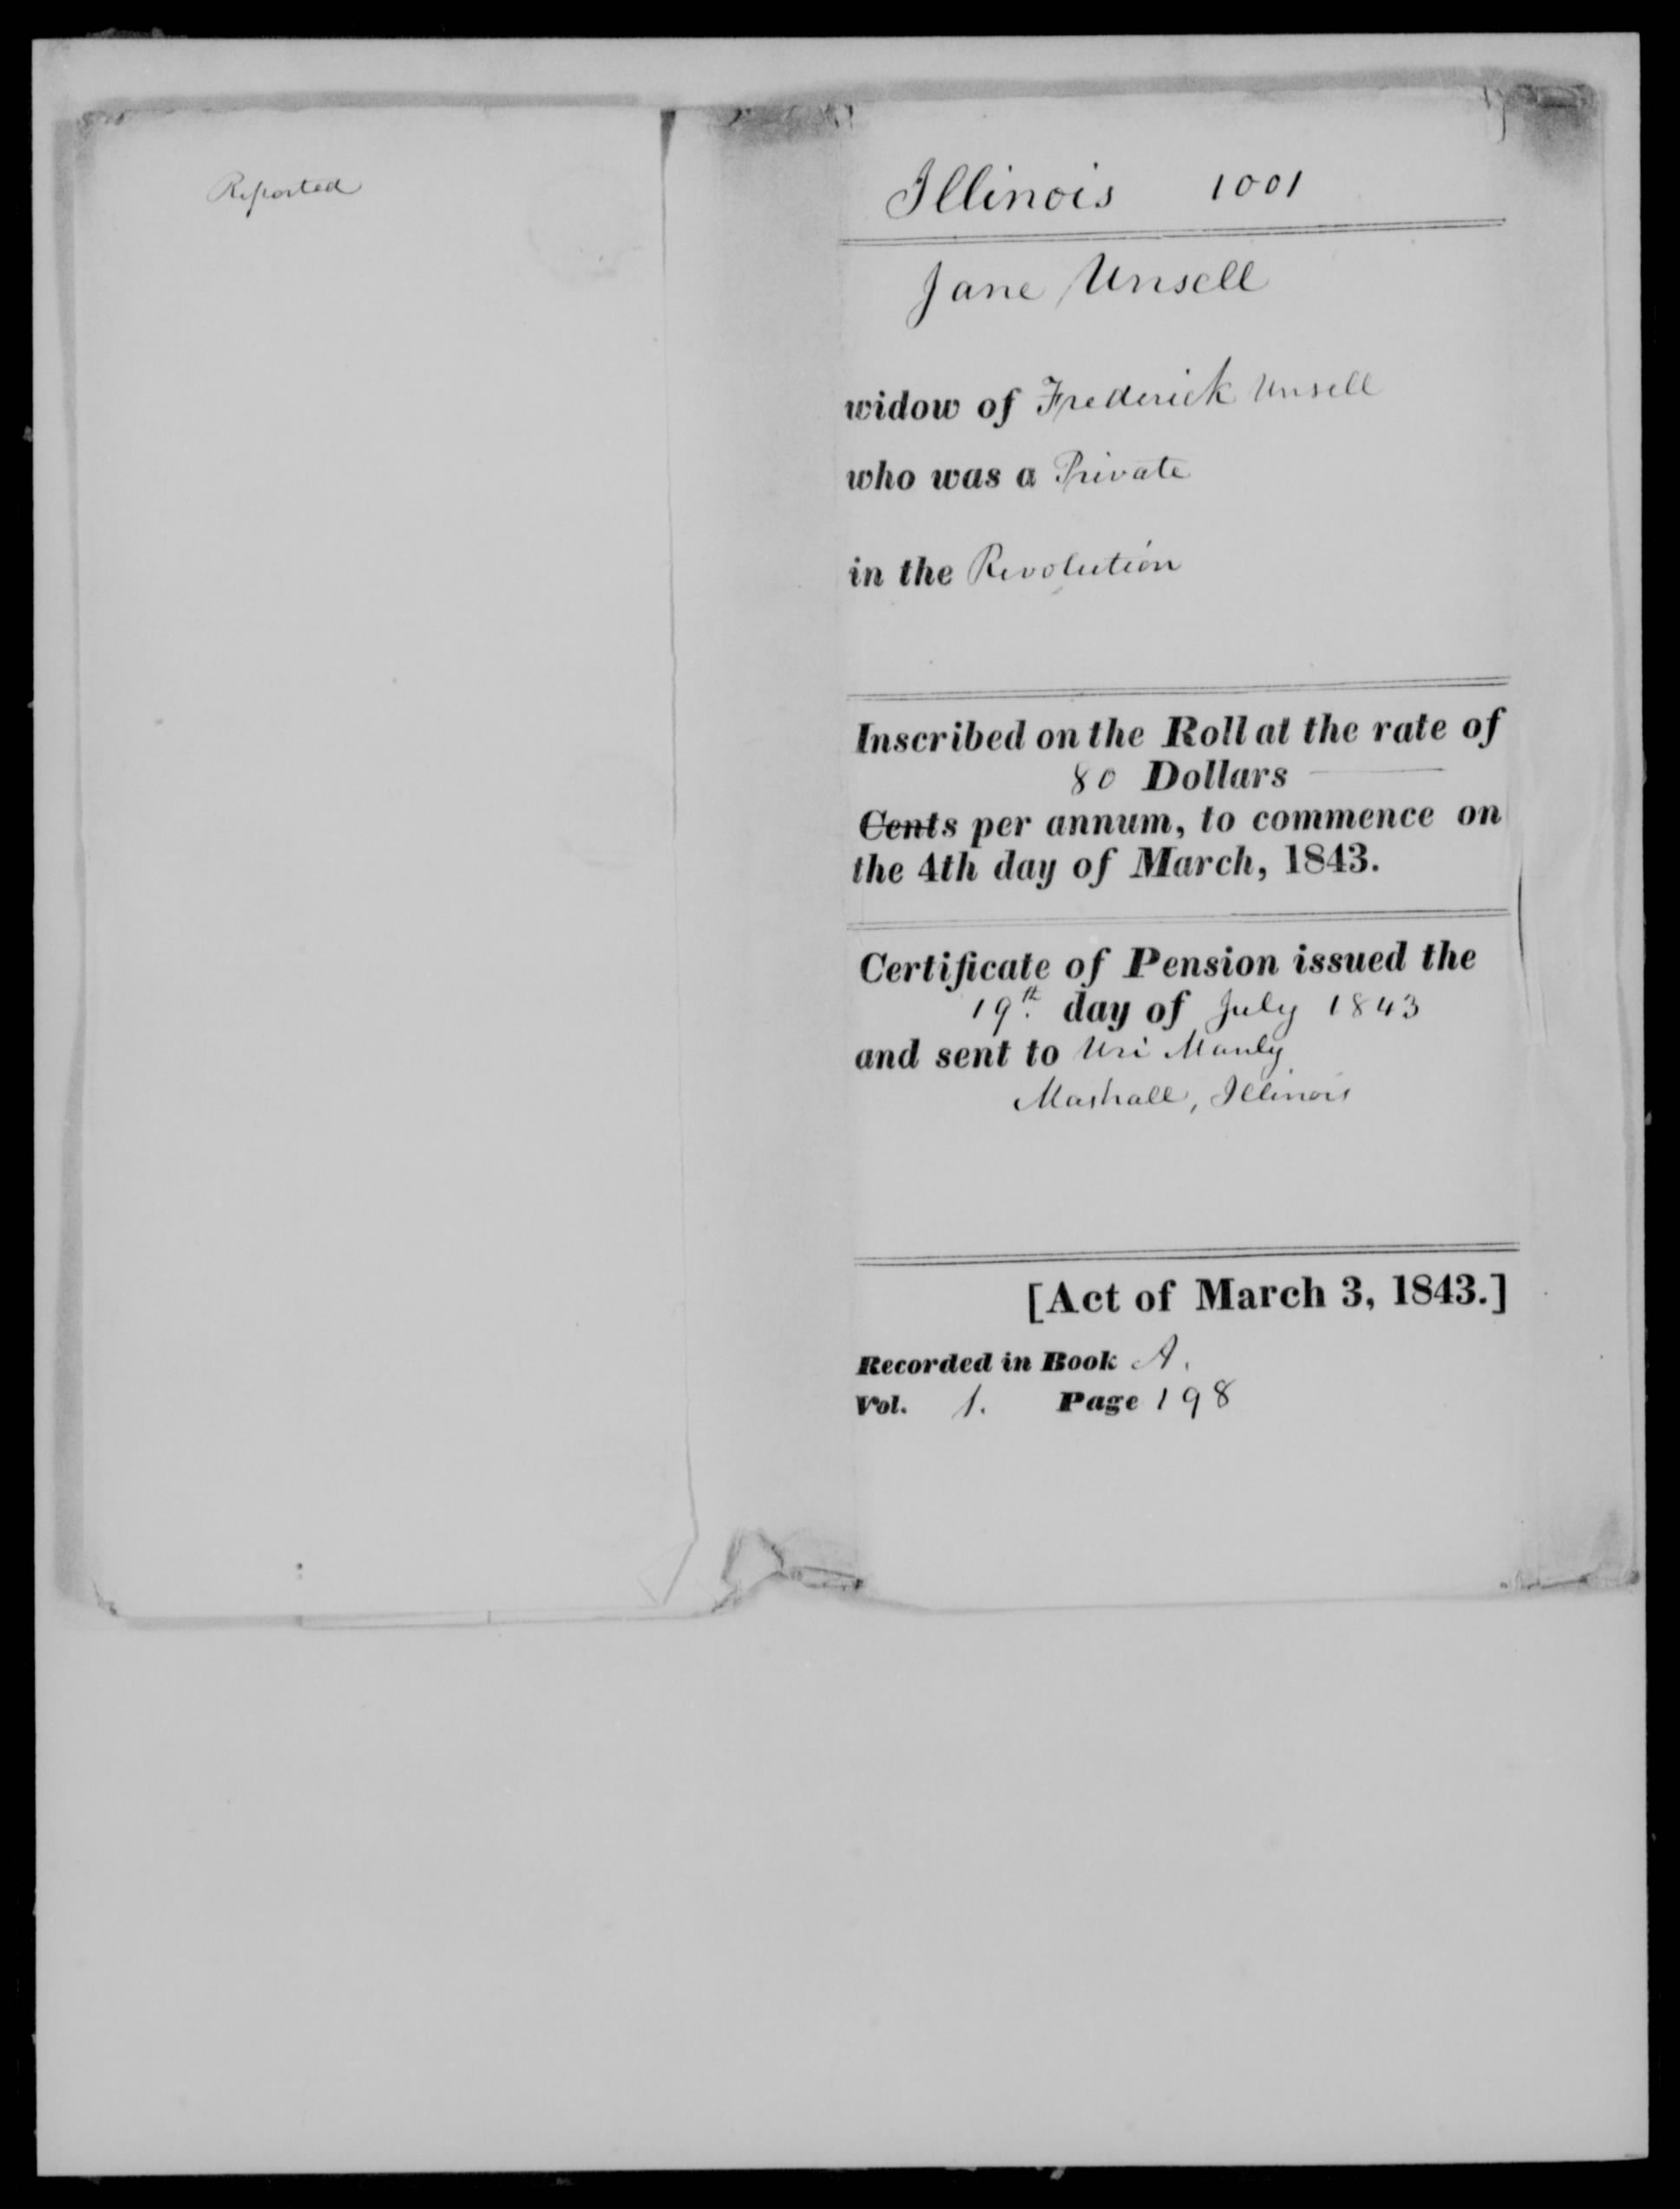 Reported
Illinois 1001
Jane Unsell
widow of Frederick Unsell
who was a Private
in the Revolution
Inscribed on the Roll at the rate of
80 Dollars
Cents per annum, to commence on
the 4th day of March, 1843.
Certificate of Pension issued the
19th. day of July 1843
and sent to Uri Manly
Mashall, Illinois
[Act of March 3, 1843.]
Recorded in Book A.
Vol. 1. Page 198